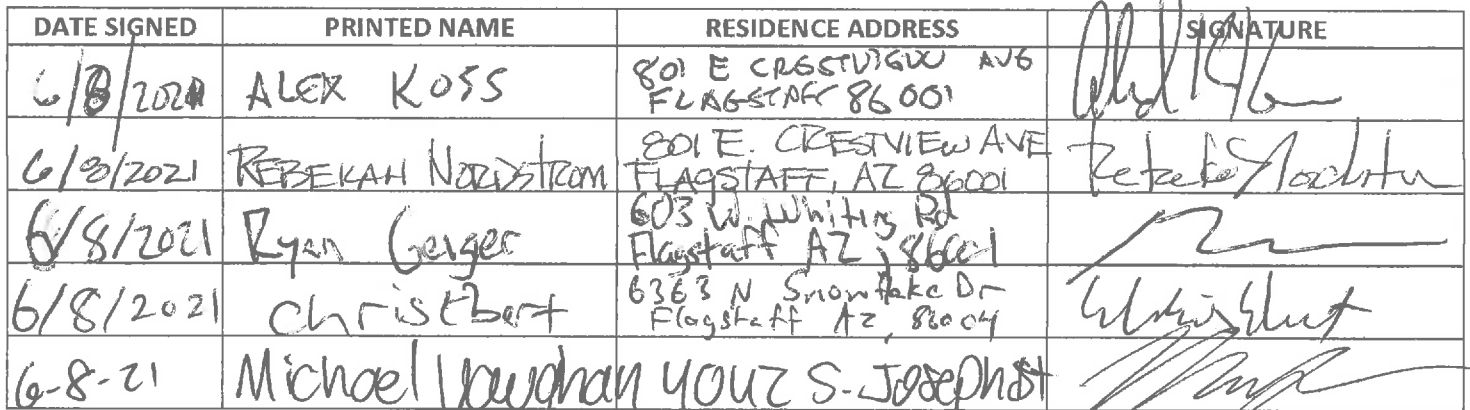 DATE SIGNED PRINTED NAME RESIDENCE ADDRESS SIGNATURE
6/8/2021 ALEX KOSS 801 E CRESTVIEW AVE
FLAGSTAFF 86001
6/8/2021 REBEKAH NORDSTROM 801 E. CRESTVIEW AVE
FLAGSTAFF, AZ 86001
6/8/2021 Ryan Geiger 603 W. Whiting Rd
Flagstaff AZ, 86001
6/8/2021 Chris Ebert 6363 N Snowflake Dr
Flagstaff AZ, 86004
6-8-21 Michael Vaughan 4042 S. Joseph St